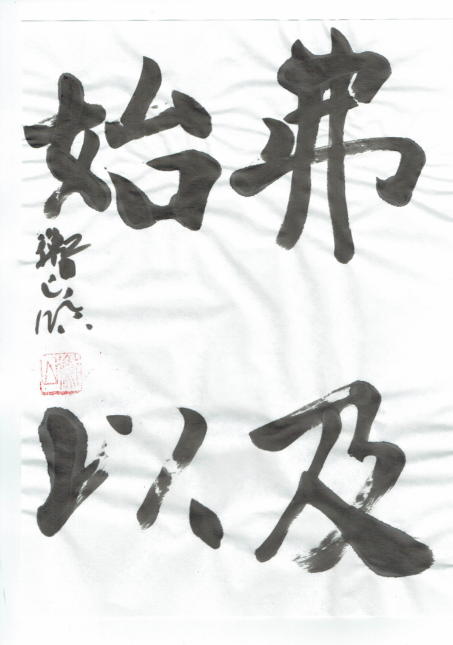 弗及
始以